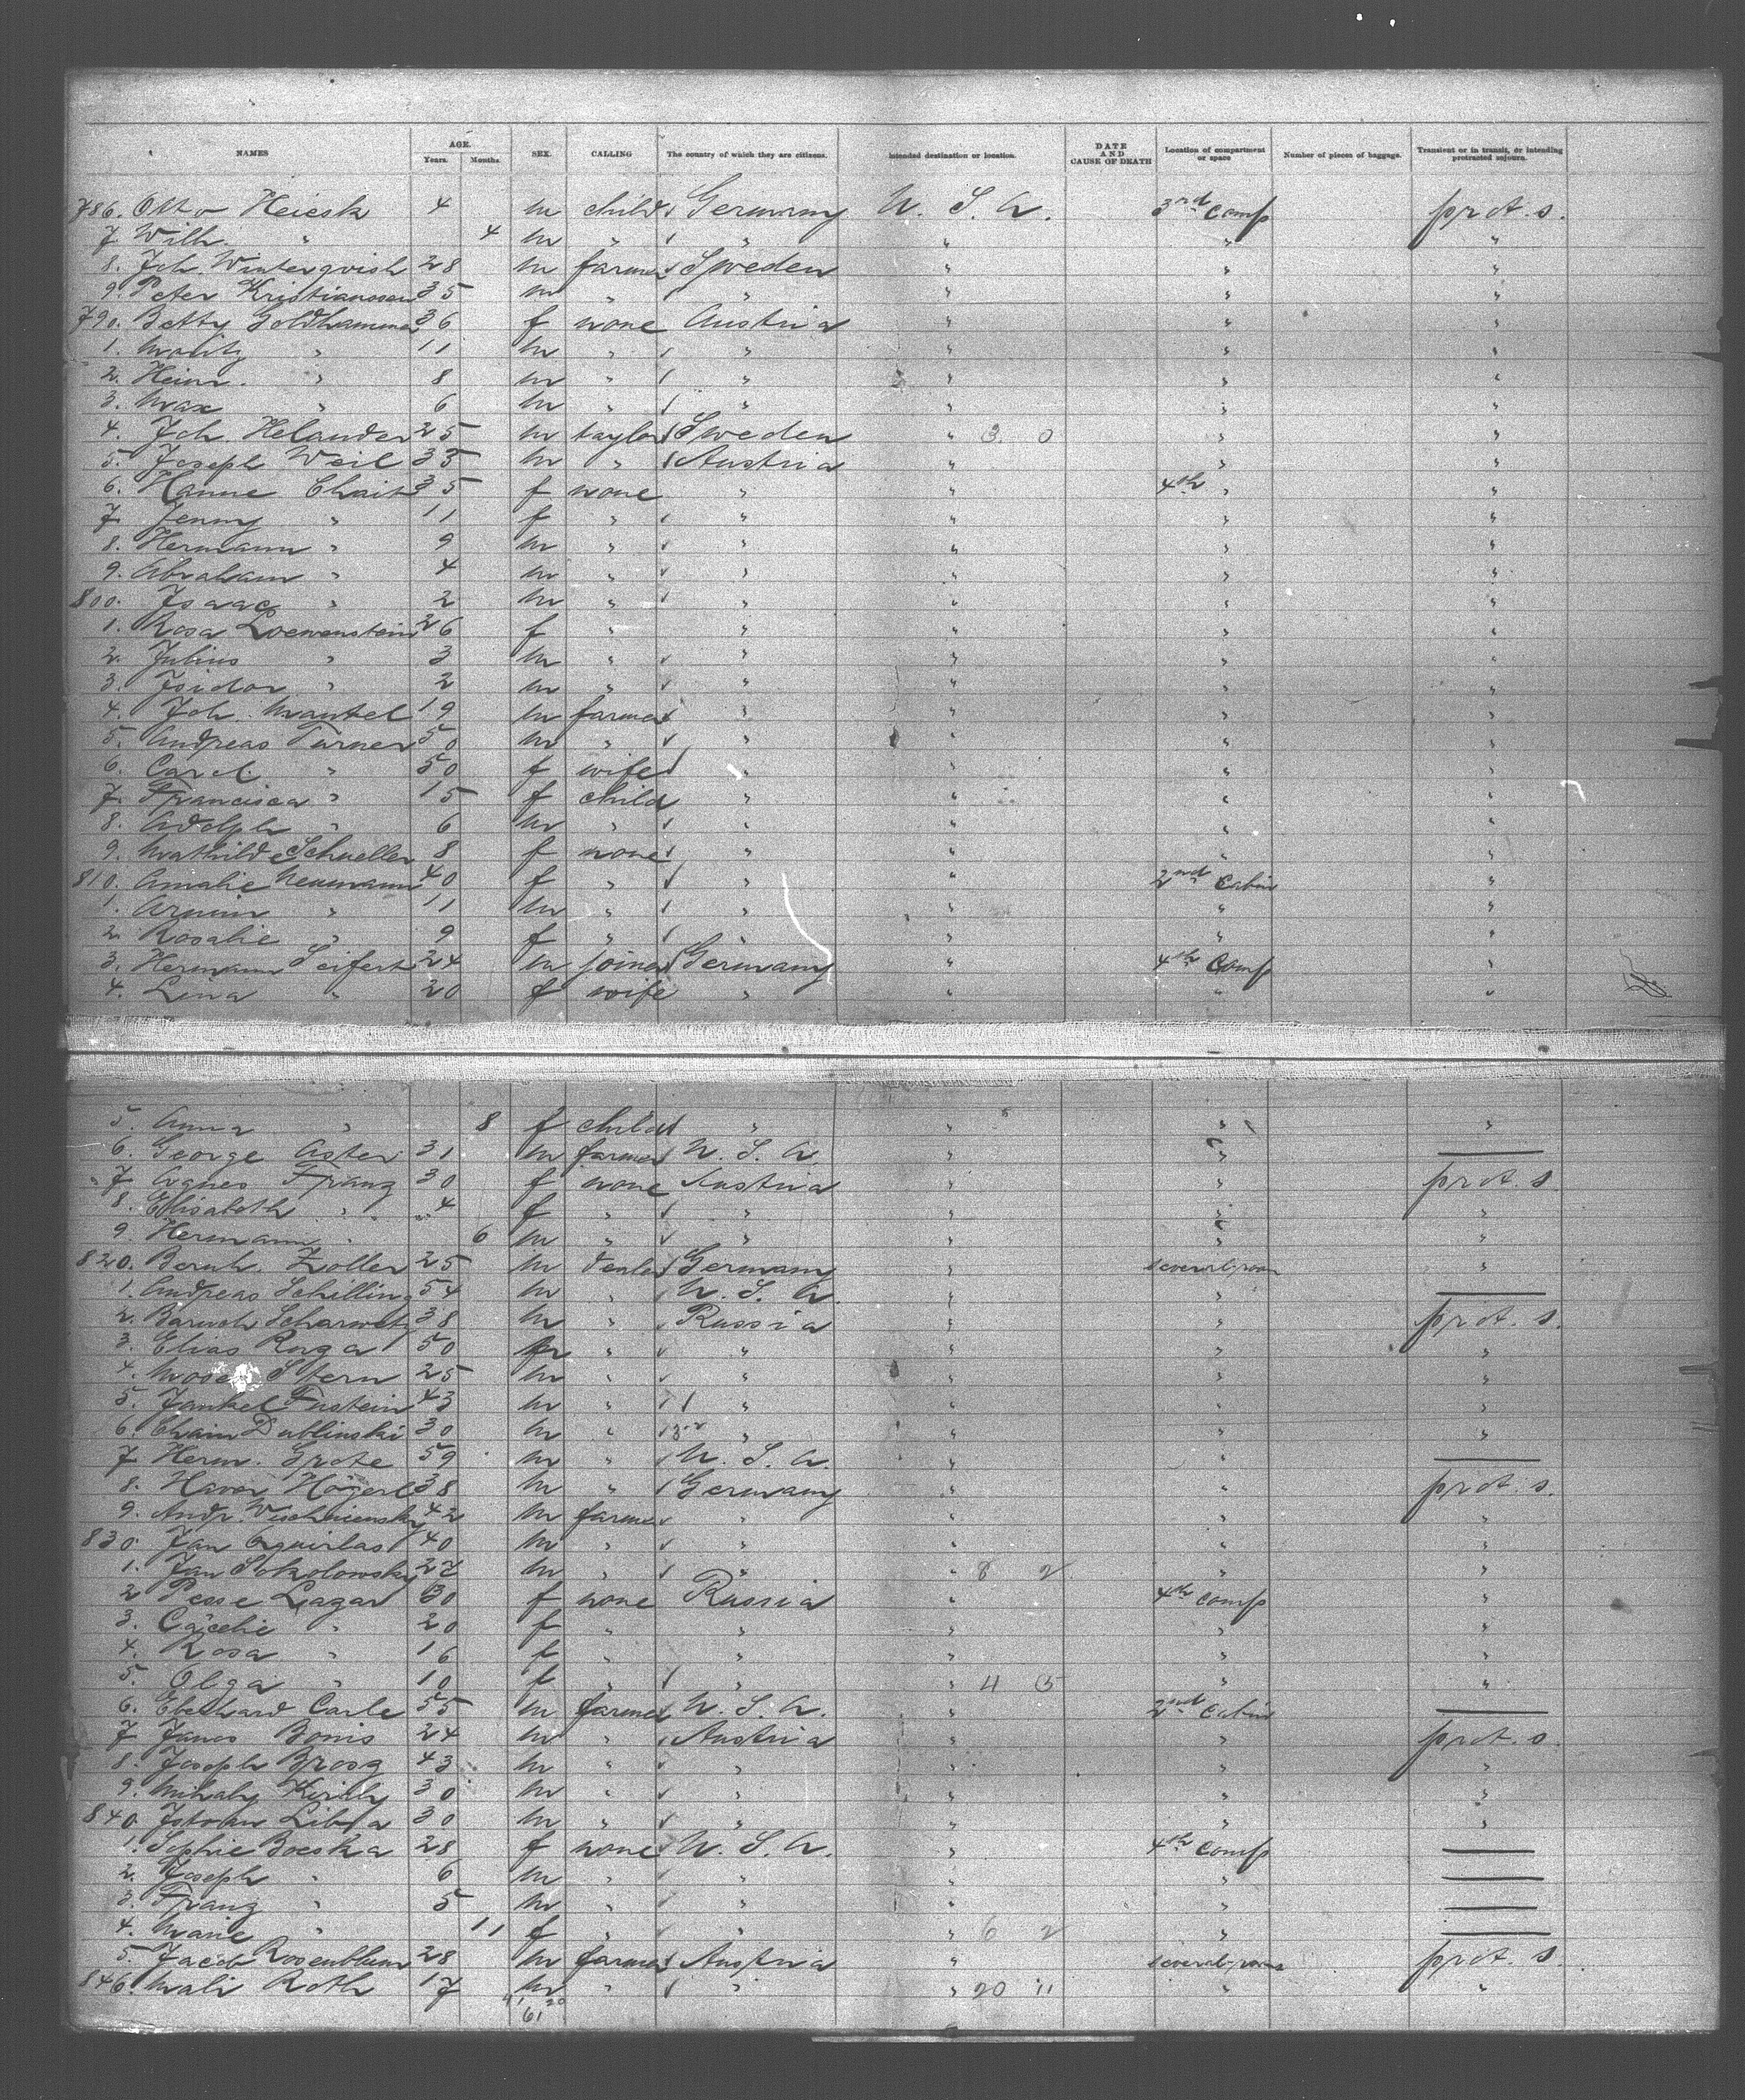 NAMES AGE. Years. Months. SEX. CALLING The country of which they are citizens. Intended destination or location. DATE AND CAUSE OF DEATH Location of compartment or space Number of pieces of baggage. Transient or in transit, or intending protracted sojourn.
786. Otto Heiesk 4 m child Germany U. S. A. 3rd Comp prot. s.
7 Wilh. " 4 m " " " " "
8. Joh. Winterqvish 28 m farmer Sweden " " "
9. Peter Kristiansson 35 m " " " " "
790. Betty Goldhammer 36 f none Austria " " "
1. Moritz " 11 m " " " " "
2. Heinr. " 8 m " " " " "
3. Max " 6 m " " " " "
4. Joh. Helander 25 m taylor Sweden " 3. 0 " "
5. Joseph Weil 35 m " Austria " " "
6. Hanne Chait 35 f none " " 4th " "
7 Jenny " 11 f " " " " "
8. Hermann " 9 m " " " " "
9. Abraham " 4 m " " " " "
800. Isaac " 2 m " " " " "
1. Rosa Loewenstein 26 f " " " " "
2. Julius " 3 m " " " " "
3. Isidor " 2 m " " " " "
4. Joh. Mantel 19 m farmer " " " "
5. Andreas Turner 50 m " " " " "
6. Carol. " 50 f wife " " " "
7. Francisca " 15 f child " " " "
8. Adolph " 6 m " " " " "
9. Mathilde Schueller 8 f none " " " "
810. Amalie Neumann 40 f " " " 2nd Cabin "
1. Armin " 11 m " " " " "
2. Rosalie " 9 f " " " " "
3. Hermann Seifert 24 m joiner Germany " 4th Comp "
4. Lina " 20 f wife " " " "
5. Anna " 8 f child " " " "
6. George Aster 31 m farmer U. S. A. " "
7 Agnes Franz 30 f none Austria " " prot. s.
8. Elisabeth " 4 f " " " " "
9. Hermann " 6 m " " " " "
820. Bernh. Zoller 25 m dealer Germany " several room "
1. Andreas Schilling 54 m " U. S. A. " "
2. Baruch Scharwetz 38 m " Russia " " prot. s.
3. Elias Roga 50 m " " " " "
4. Moses Stern 25 m " " " " "
5. Jankel Fustein 43 m " " " " "
6. Chaim Dublinski 30 m " " " " "
7 Herm. Grote 59 m " U. S. A. " "
8. Haver Högerl 38 m " Germany " " prot. s.
9. Andr. Wischniensky 42 m farmer " " " "
830. Jan 40 m " " " " "
1. Jan Sokolowsky 22 m " " " 8 2 " "
2 Pesse Lagar 30 f none Russia " 4th Comp "
3. Cäcelie " 20 f " " " " "
4. Rosa " 16 f " " " " "
5. Olga " 10 f " " " 4 5 " "
6. Eberhard Carle 55 m farmer U. S. A. " 2nd Cabin
7 Janos Bonis 24 m " Austria " " prot. s.
8. Joseph Brosz 43 m " " " " "
9. Mihaly Kirilly 30 m " " " " "
840. Istvan Libra 30 m " " " " "
1. Sophie Boeska 28 f none U. S. A. " 4th Comp
2. Joseph " 6 m " " " "
3. Franz " 5 m " " " "
4. Marie " 11 f " " " 6 2 "
5. Jacob Rosenblum 28 m farmer Austria " several room prot. s.
846. Mali Roth 17 m " " " 20 11 " "
41 20
61